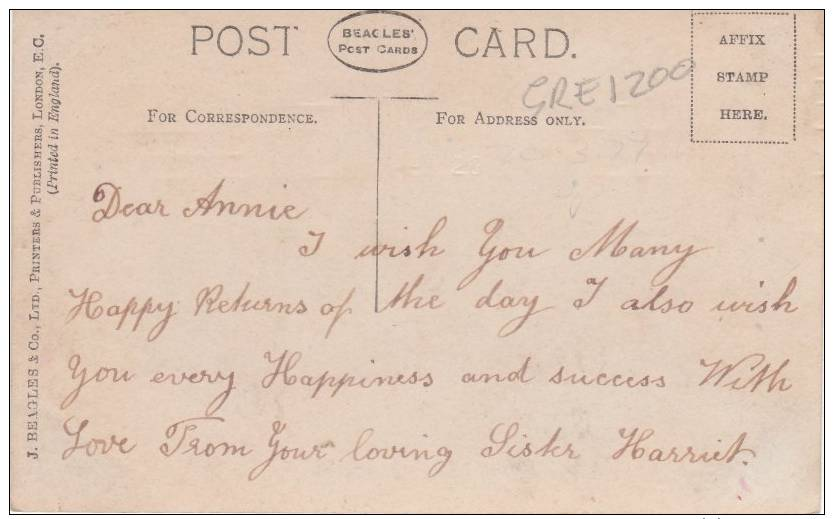 POST CARD.
BEAGLES'
POST CARDS
AFFIX
STAMP
HERE.
GRE1200
FOR CORRESPONDENCE.
FOR ADDRESS ONLY.
J. BEAGLES & CO., LTD., PRINTERS & PUBLISHERS, LONDON, E.C.
(Printed in England).
Dear Annie
I wish You Many
Happy Returns of the day I also wish
You every Happiness and success With
Love From Your loving Sister Harriet.